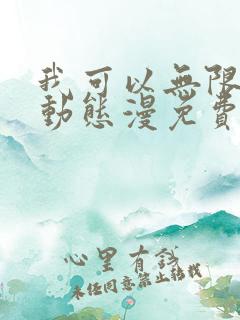 我可以無限
動態漫免費
心里有諾
未經同意禁止轉載